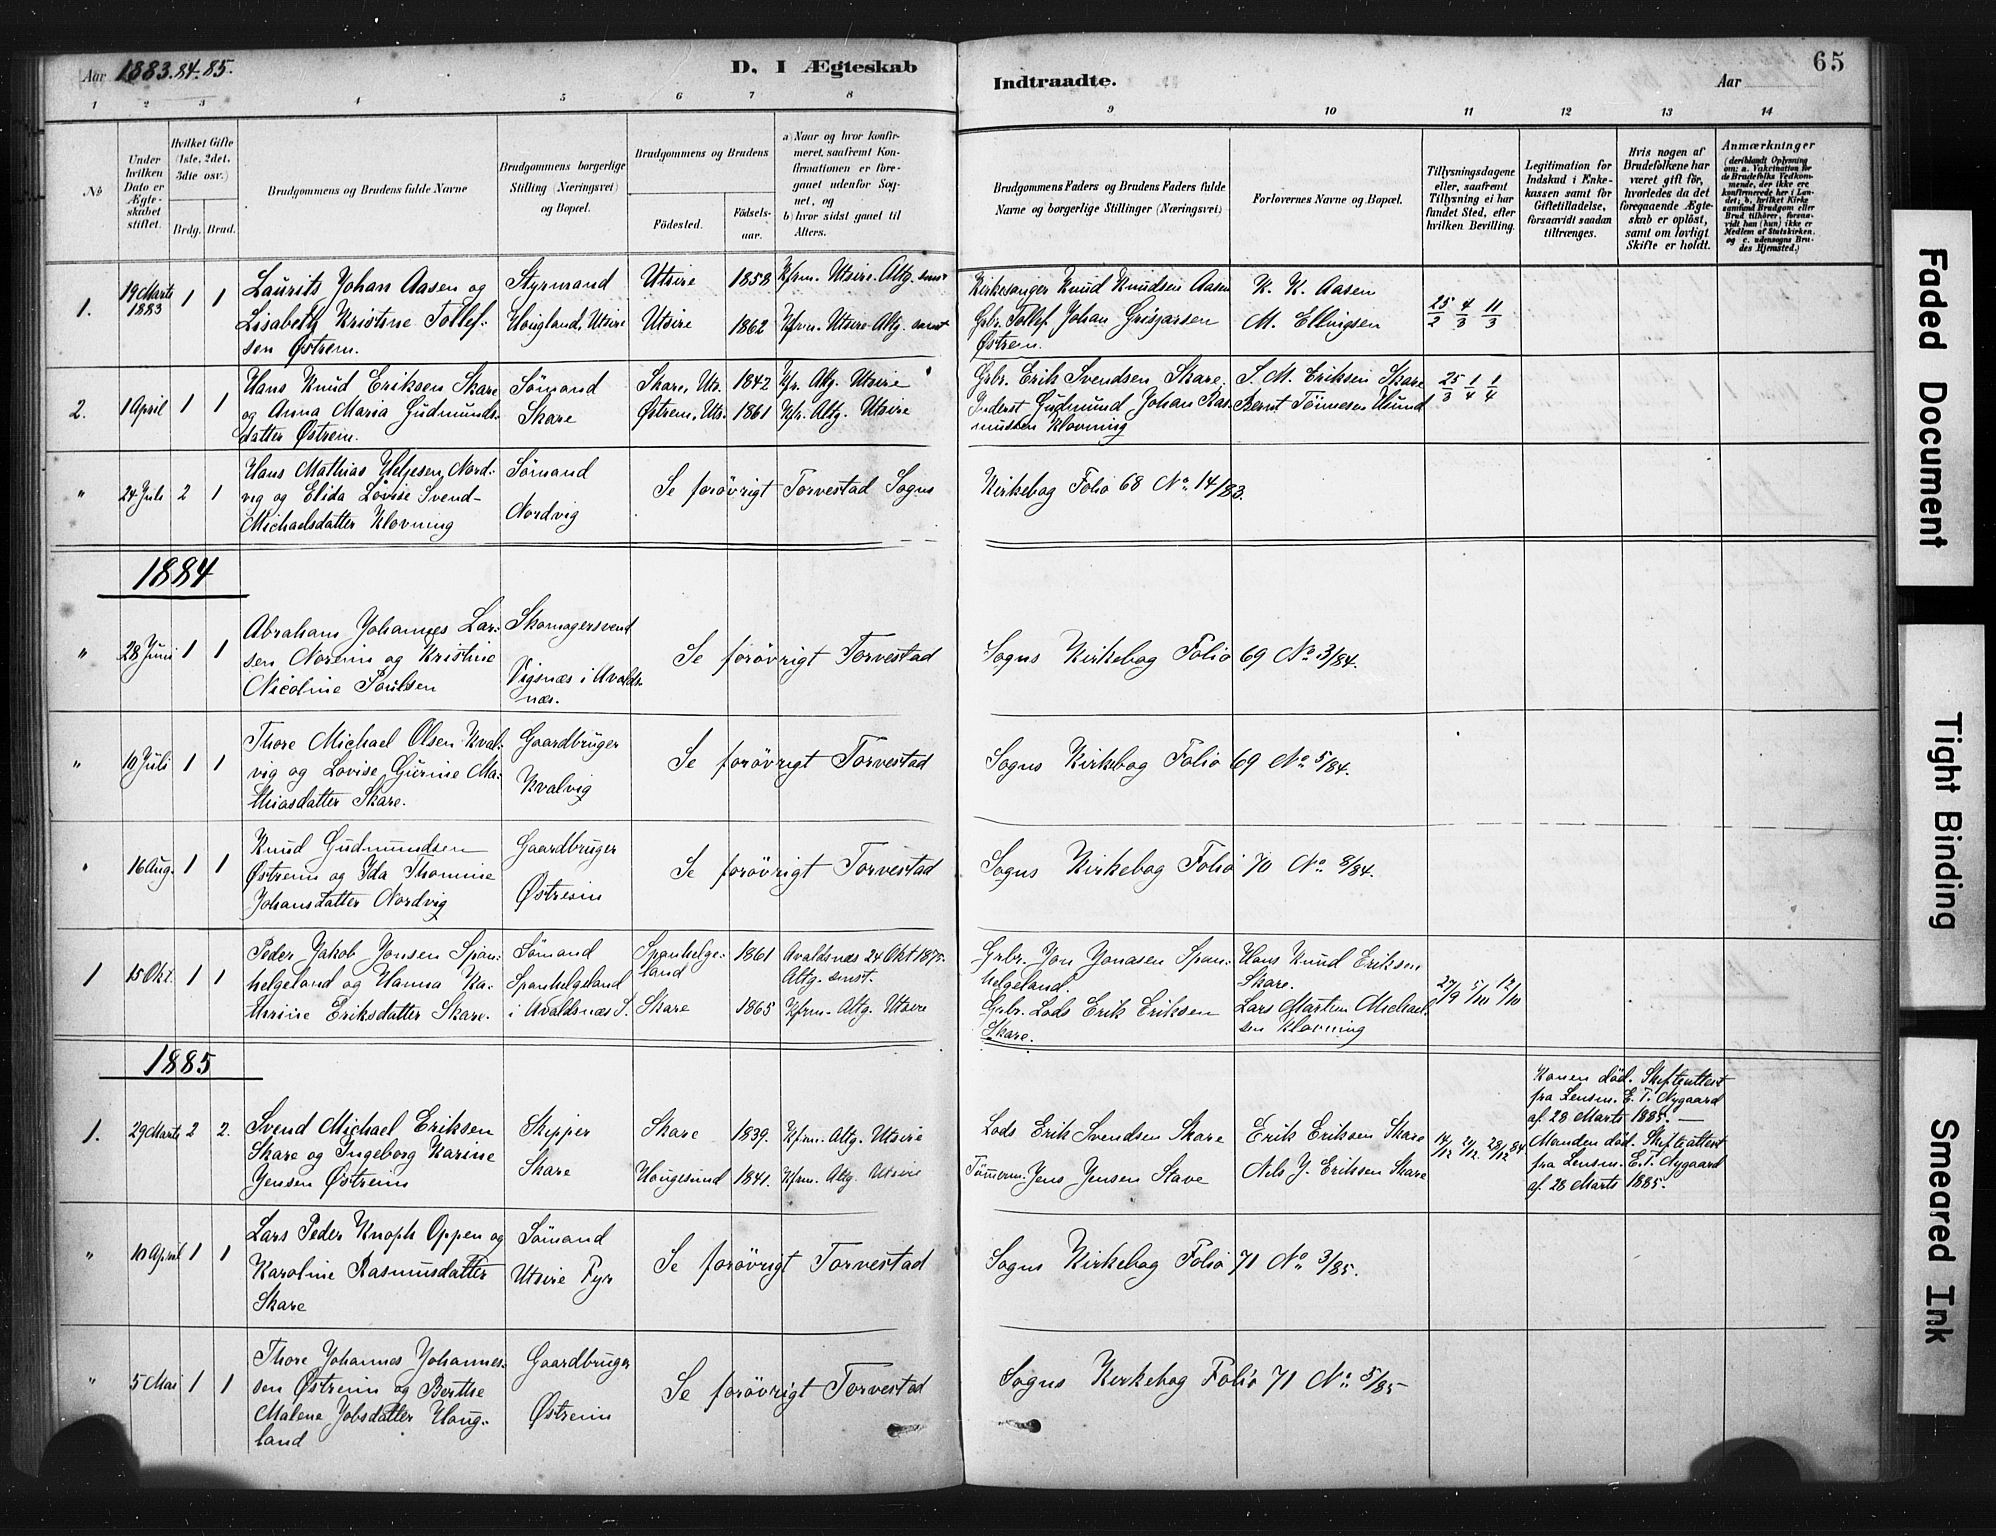 Aar 1883.84.85.
D. I Ægteskab
Indtraadte.
Aar
65
1 2 3 4 5 6 7 8 9 10 11 12 13 14
No
Under hvilken Dato er Ægteskabet stiftet.
Hvilket Gifte (1ste, 2det, 3die osv.)
Brdg. Brud.
Brudgommens og Brudens fulde Navne
Brudgommens borgerlige Stilling (Næringsvei) og Bopæl.
Brudgommens og Brudens
Fødested.
Fødsels-aar.
a) Naar og hvor konfirmeret, saafremt Konfirmationen er foregaaet udenfor Sognet, og
b) hvor sidst gaaet til Alters.
Brudgommens Faders og Brudens Faders fulde Navne og borgerlige Stillinger (Næringsvei)
Forlovernes Navne og Bopæl.
Tillysningsdagene eller, saafremt Tillysning ei har fundet Sted, efter hvilken Bevilling.
Legitimation for Indskud i Enkekassen samt for Giftetilladelse, forsaavidt saadan tiltrænges.
Hvis nogen af Brudefolkene har været gift før, hvorledes da det foregaaende Ægteskab er opløst, samt om lovligt Skifte er holdt.
Anmærkninger
(deriblandt Oplysning om: a. Vakcination for de Brudefolks Vedkommende, der ikke ere konfirmerede her i Landet; b. hvilket Kirkesamfund Brudgom eller Brud tilhører, forsaavidt han (hun) ikke er Medlem af Statskirken, og c. udensogns Brudes Hjemsted.)
1. 19 Marts 1883 1 1
Laurits Johan Aasen og
Lisabeth Kristine Tollef-
sen Østrem.
Styrmand
Hougland, Utsire
Utsire 1858 Kfrm. Utsire. Altg. smst
Utsire 1862 Kfrm. Utsire Altg. smst
Kirkesanger Knud Knudsen Aasen
Grbr. Tollef Johan Grisjarsen
Østrem.
K. K. Aasen
M. Ellingsen
25/2 4/3 11/3
2. 1 April 1 1
Hans Knud Eriksen Skare
og Anna Maria Gudmunds-
datter Østrem.
Sømand
Skare
Skare, Uts. 1842 Kfr. Altg. Utsire
Østrem, Uts. 1861 Kfr. Altg. Utsire
Grbr. Erik Svendsen Skare.
Inderst Gudmund Johan Ras-
mussen Klovning
S. M. Eriksen Skare
Bernt Tønnesen Hund
25/3 1/4 1/4
" 24 Juli 2 1
Hans Mathias Helgesen Nord-
vig og Elida Lovise Svend-
Michaelsdatter Klovning
Sømand
Nordvig
Se forøvrigt Torvestad Sogns
Kirkebog Folio 68 No. 14/83.
1884
" 28 Juni 1 1
Abraham Johannes Lar-
sen Norem og Kristine
Nicoline Poulsen
Skomagersvend
Vigsnæs i Avalds-
næs.
Se forøvrigt Torvestad
Sogns Kirkebog Folio 69 No. 3/84.
" 10 Juli 1 1
Thore Michael Olsen Kval-
vig og Lovise Gurine Ma-
thiasdatter Skare.
Gaardbruger
Kvalvig
Se forøvrigt Torvestad
Sogns Kirkebog Folio 69 No. 5/84.
" 16 Aug. 1 1
Knud Gudmundsen
Østrem og Ida Thomine
Johansdatter Nordvig
Gaardbruger
Østrem
Se forøvrigt Torvestad
Sogns Kirkebog Folio 70 No. 8/84.
1 15 Okt. 1 1
Peder Jakob Jonsen Span-
helgeland og Hanna Ka-
thrine Eriksdatter Skare.
Sømand
Spanhelgeland
i Avaldsnæs S.
Spanhelge-
land
1861
Avaldsnæs 24 Okt 1875.
Altg. smst.
Skare 1865 Kfrm. Altg. Utsire
Grbr. Jon Jonasen Span-
helgeland.
Grbr. Lods Erik Eriksen
Skare.
Hans Knud Eriksen
Skare.
Lars Marten Michael-
sen Klovning
27/9 5/10 12/10
1885
1. 29 Marts 2 2.
Svend Michael Eriksen
Skare og Ingeborg Karine
Jensen Østrem
Skipper
Skare
Skare 1839. Kfrm. Altg. Utsire
Hougesund 1841. Kfrm. Altg. Utsire
Lods Erik Svendsen Skare
Tømerm. Jens Jensen Stave
Erik Eriksen Skare
Nils J. Eriksen Skare
14/12 21/12. 28/12 84
Konen død. Skifteattest
fra Lensm. E. T. Nygaard
af 28 Marts 1885. —
Manden død. Skifteattest
fra Lensm. E. T. Nygaard
af 28 Marts 1885.
" 10 April 1 1
Lars Peder Knoph Oppen og
Karoline Rasmusdatter
Skare
Sømand
Utsire Fyr
Se forøvrigt Torvestad
Sogns Kirkebog Folio 71 No. 3/85.
" 5 Mai 1 1
Thore Johannes Johannes-
sen Østrem og Berthe
Malene Jobsdatter Houg-
land
Gaardbruger
Østrem
Se forøvrigt Torvestad
Sogns Kirkebog Folio 71 No. 5/85
Faded Document
Tight Binding
Smeared Ink